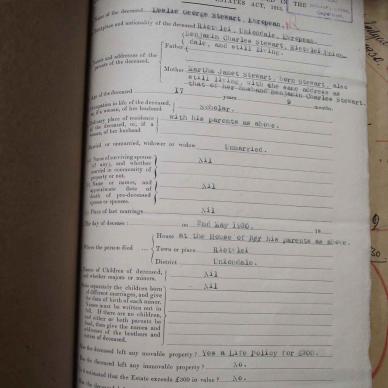 STATES ACT, 1913
Name of the deceased Leslie George Stewart, European.
Birthplace and nationality of the deceased Rietvlei, Uniondale, European.
Names and addresses of the parents of the deceased.
Father Benjamin Charles Stewart, Rietvlei Union-
dale, and still living.
Mother Martha Janet Stewart, born Stewart, also
still living, with the same address as
that of her husband Benjamin Charles Stewart.
Age of the deceased 17 years 9 months.
Occupation in life of the deceased, or, if a woman, of her husband Scholar.
Ordinary place of residence of the deceased, or, if a woman, of her husband with his parents as above.
Married or unmarried, widower or widow Unmarried.
Name of surviving spouse (if any), and whether married in community of property or not. Nil
Name or names, and approximate date of death of pre-deceased spouse or spouses. Nil
Place of last marriage Nil
The day of decease: on 2nd May 19
Where the person died
House at the House of his parents as above.
Town or place Rietvlei
District Uniondale.
Names of Children of deceased, and whether majors or minors. Nil
State separately the children born of different marriages, and give the date of birth of each minor. Names must be written out in full. If there are no children, and either or both parents be dead, then give the names and addresses of the brothers and sisters of deceased. Nil
Has the deceased left any movable property? Yes a Life Policy for £300.
Has the deceased left any immovable property? No.
Is it estimated that the Estate exceeds £300 in value? No.